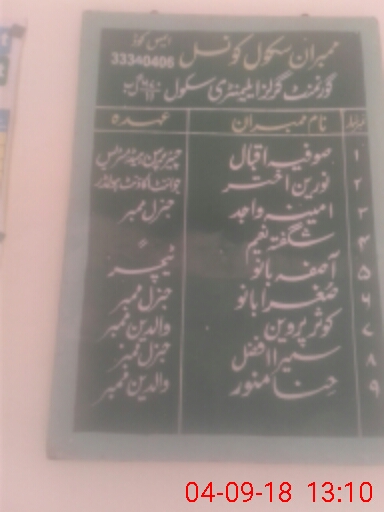 ممبران سکول کونسل ایمس کوڈ
33340406
گورنمنٹ گرلز ایلیمنٹری سکول
نمبر شمار نام ممبران عہدہ
۱ صوفیہ اقبال چیئرپرسن ہیڈمسٹریس
۲ نورین اختر جوائنٹ اکاؤنٹ ہولڈر
۳ امینہ واجد جنرل ممبر
۴ شگفتہ نعیم 〃
۵ آصفہ بانو ٹیچر
۶ صغرا بانو جنرل ممبر
۷ کوثر پروین والدین ممبر
۸ سمیرا افضل جنرل ممبر
۹ حنا منور والدین ممبر
04-09-18 13:10